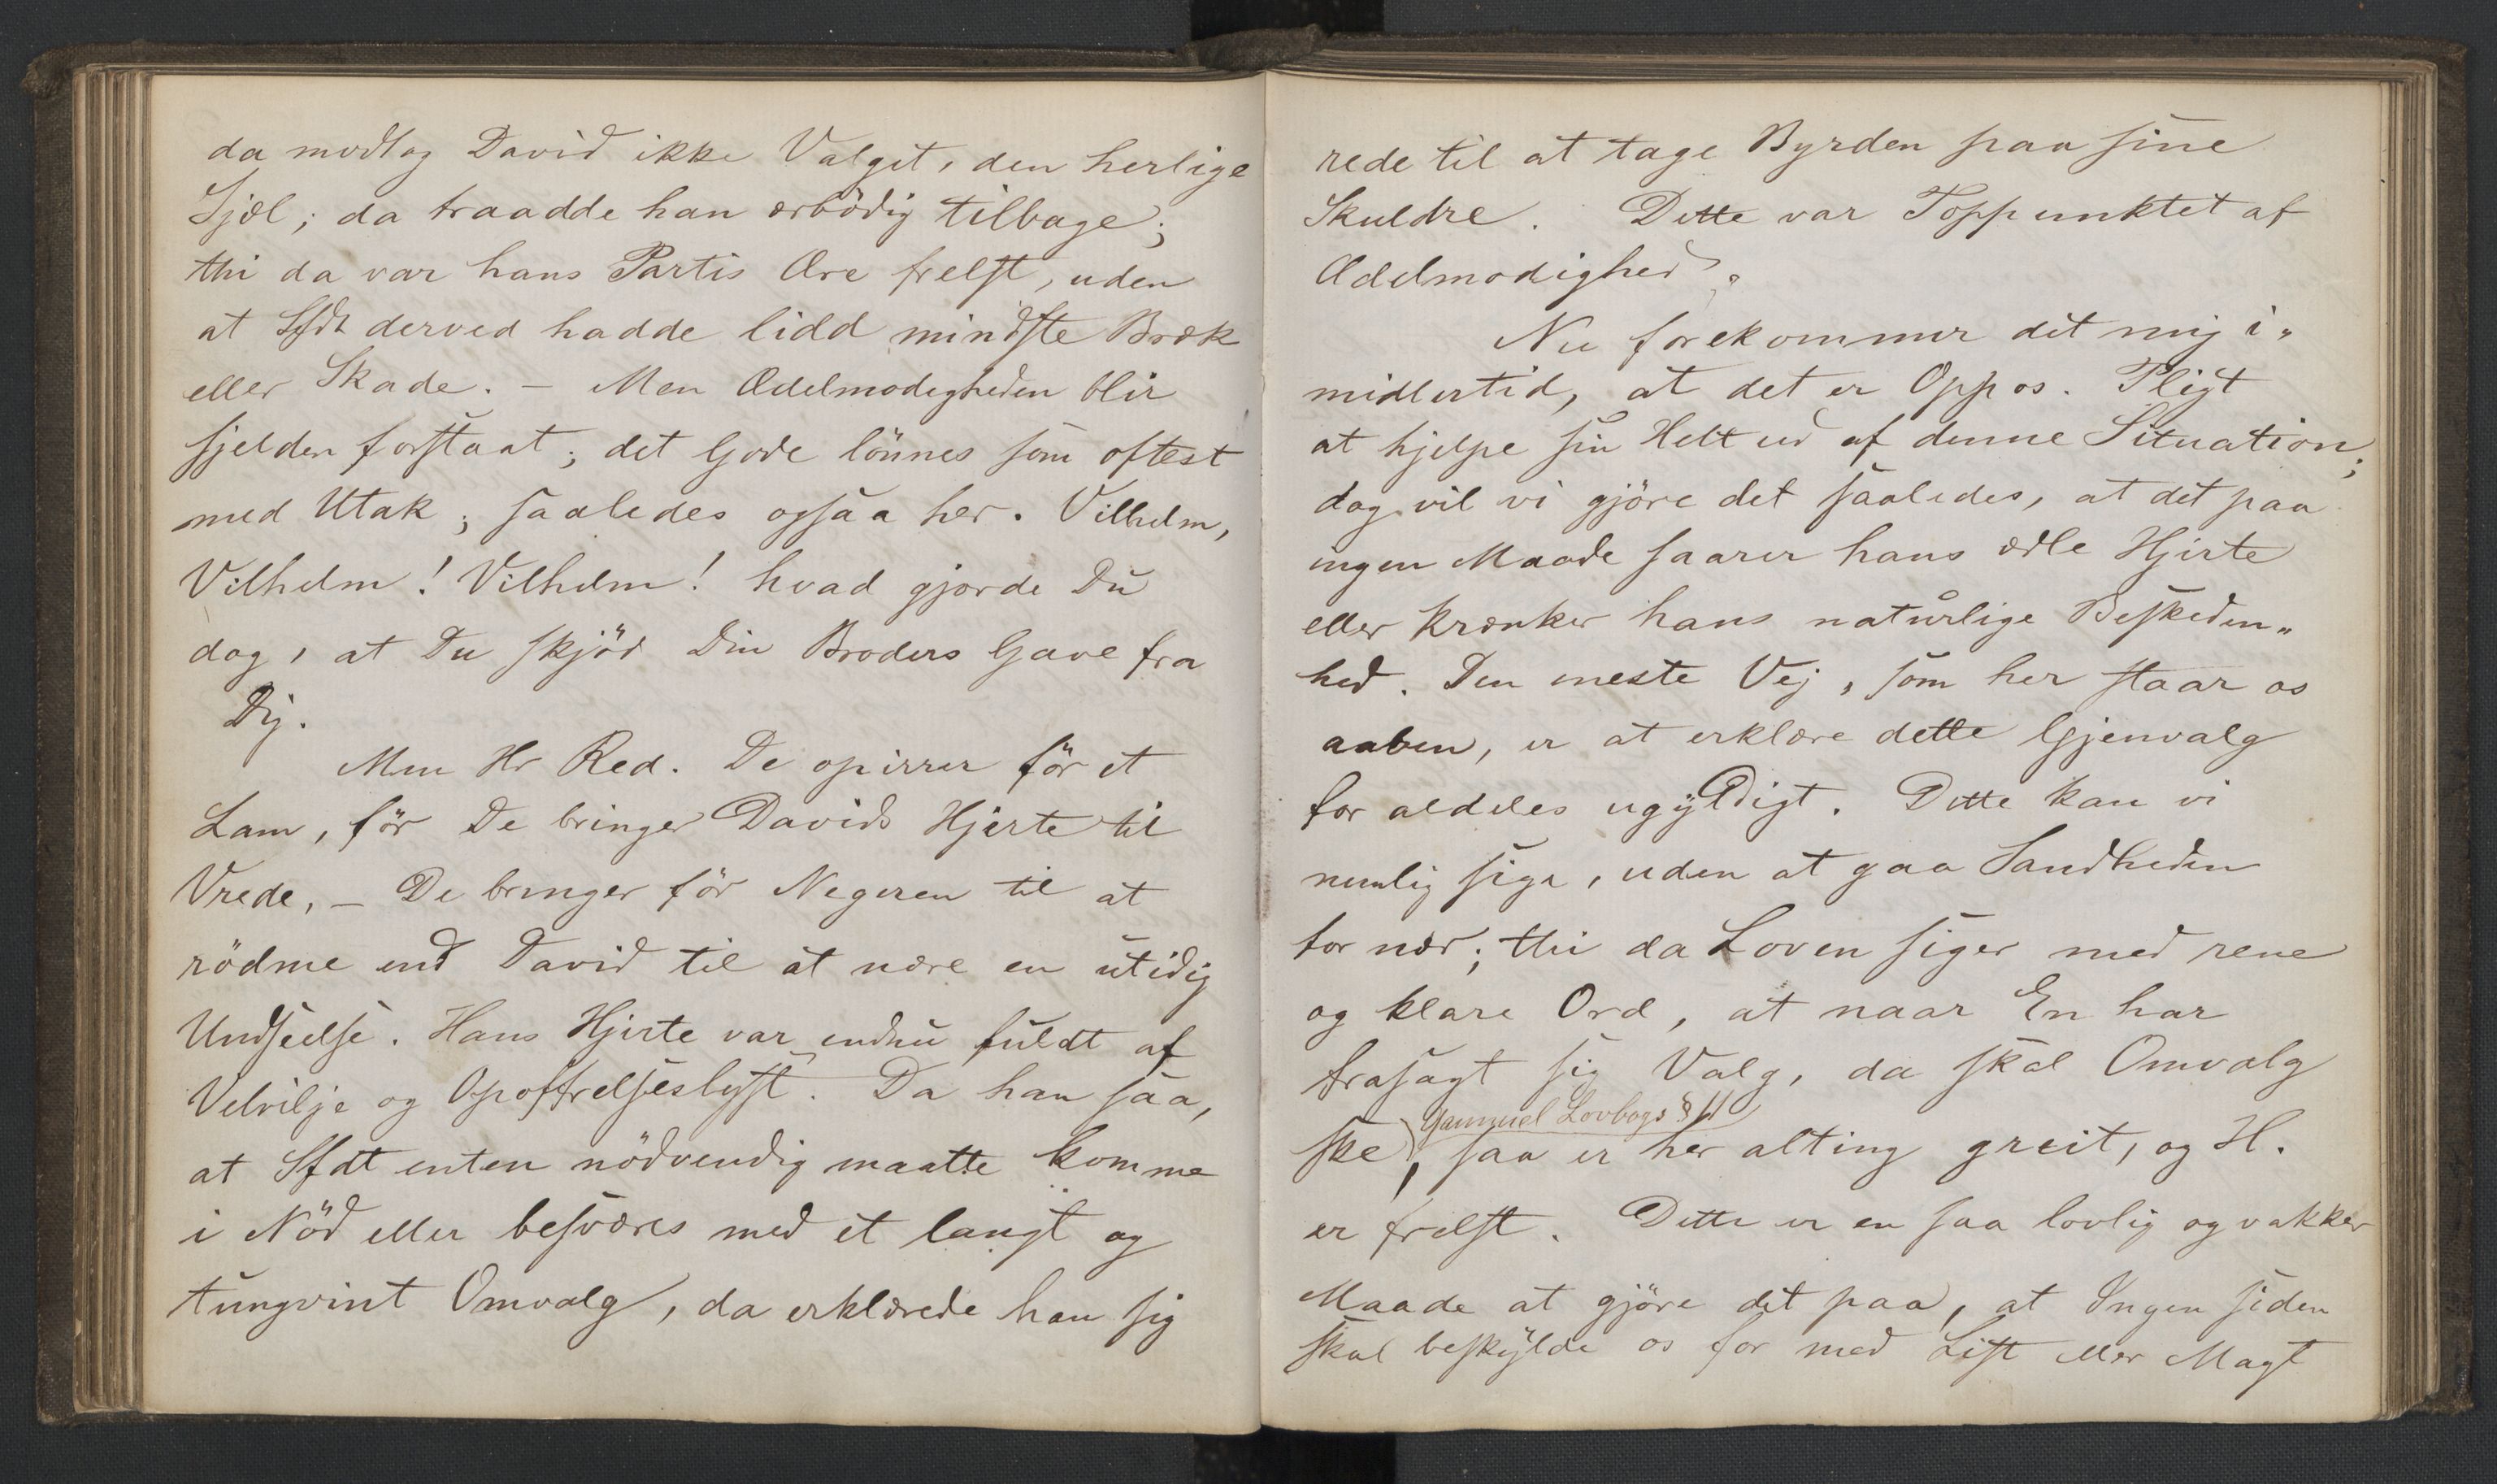 da modtog David ikke Valget, den herlige
Sjæl; da traadde han ærbödig tilbage;
thi da var hans Partis Ære frelst, uden
at Sfdt derved hadde lidd mindste Bræk
eller Skade. – Men Ædelmodigheden blir
sjelden forstaat; det Gode lönnes som oftest
med Utak; saaledes ogsaa her. Vilhelm,
Vilhelm! Vilhelm! hvad gjorde Du
dog, at Du skjöd Din Broders Gave fra
Dig.
Men Hr Red. De opirrer för et
Lam, för De bringer Davids Hjerte til
Vrede, – De bringer för Negeren til at
rödme end David til at nære en utidig
Undseelse. Hans Hjerte var endnu fuldt af
Velvilje og Opoffrelseslyst. Da han saa,
at Sfdt enten nödvendig maatte komme
i Nöd eller besværes med et langt og
tungvint Omvalg, da erklærede han sig
rede til at tage Byrden paa sine
Skuldre. Dette var Toppunktet af
Ædelmodighed.
Nu forekommer det mig i„
midlertid, at det er Oppos. Pligt
at hjelpe sin Helt ud af denne Situation;
dog vil vi gjöre det saaledes, at det paa
ingen Maade saarer hans ædle Hjerte
eller krænker hans naturlige Beskeden„
hed. Den eneste Vej, som her staar os
aaben, er at erklære dette Gjenvalg
for aldeles ugyldigt. Dette kan vi
nemlig sige, uden at gaa Sandheden
for nær; thi da Loven siger med rene
og klare Ord, at naar En har
frasagt sig Valg, da skal Omvalg
Gammel Lovbogs §
ske, saa er her alting greit, og H.
er frelst. Dette er en saa lovlig og vakker
Maade at gjöre det paa, at Ingen siden
skal beskylde os for med List eller Magt